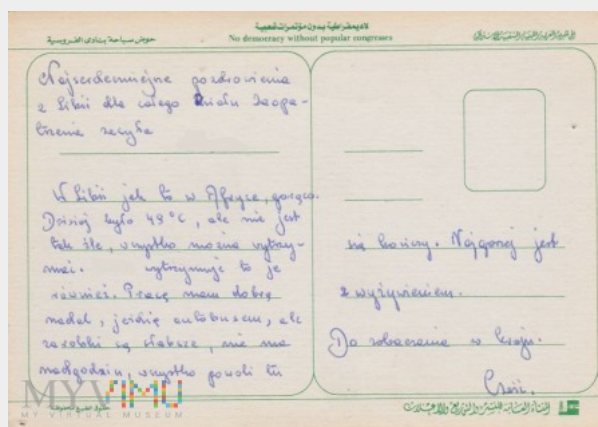 لاديمقراطية بدون مؤتمرات شعبية
No democracy without popular congresses
حوض سباحة بنادى الفروسية
Najserdeczniejsze pozdrowienia
z Libii dla całego Działu Zaopa-
trzenia zasyła
W Libii jak to w Afryce, gorąco.
Dzisiaj było 49°C, ale nie jest
tak źle, wszystko można wytrzy-
mać. wytrzymuję to je
również. Pracę mam dobrą
nadal, jeżdżę autobusem, ale
zarobki są słabsze, nie ma
nadgodzin, wszystko powoli tu
się kończy. Najgorzej jest
z wyżywieniem.
Do zobaczenia w kraju.
Cześć.
MYVIMU
MY VIRTUAL MUSEUM
المنشأة العامة للنشر والتوزيع والاعلان